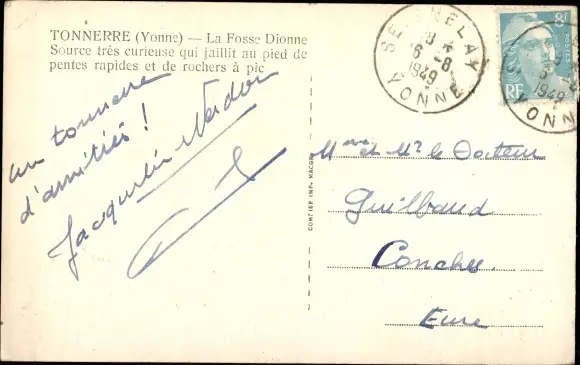 TONNERRE (Yonne) — La Fosse Dionne
Source très curieuse qui jaillit au pied de
pentes rapides et de rochers à pic
un tonnerre
d'amitiés !
Jacqueline
SEIGNELAY
6-8
1949
YONNE
8F
POSTES
RF
1949
YONNE
COMBIER IMP. MACON
Mme et Mr le Docteur
Guilbaud
Conches
Eure